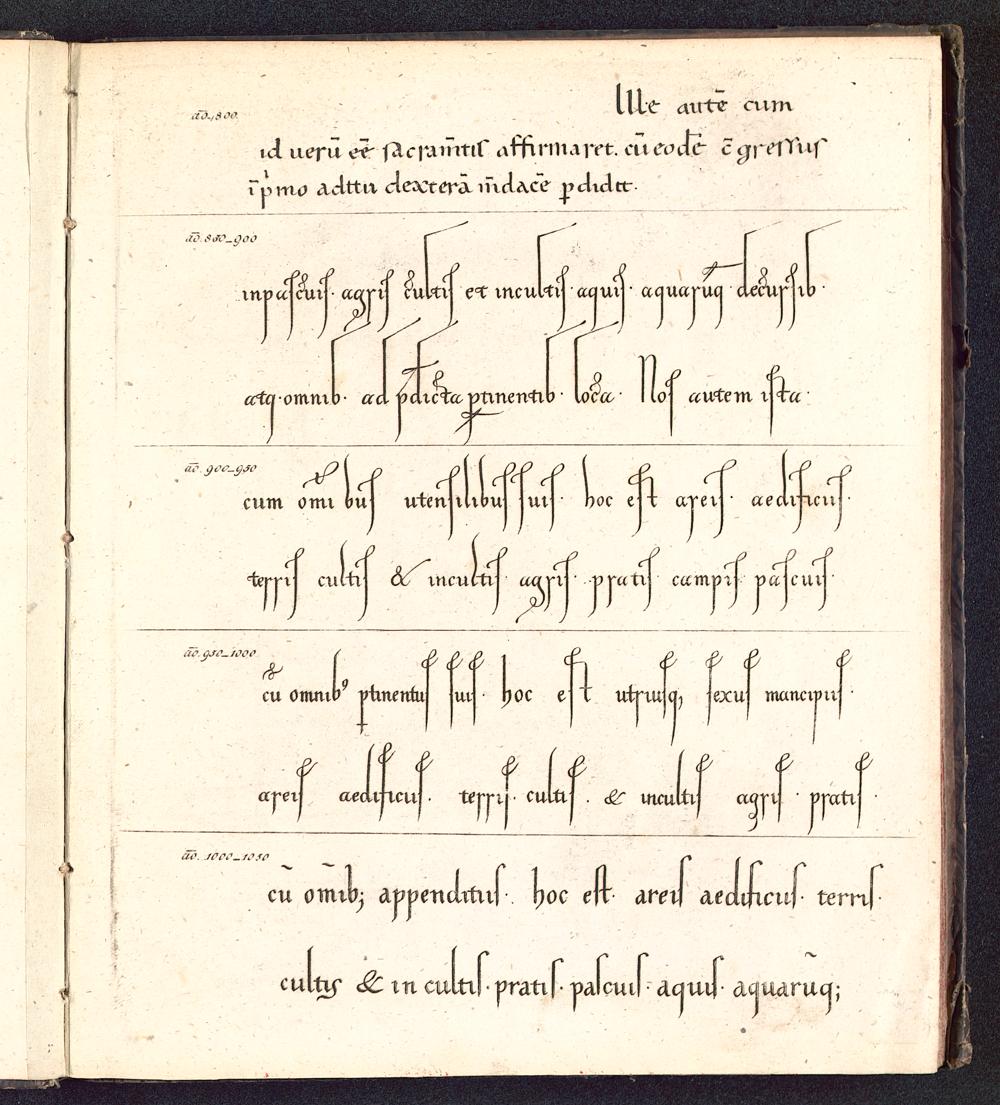 a͞o. 800.
Ille autē cum
id uerū eē sacram̄tis affirmaret. cū eodē c̄gressus
īpͥmo aditu dexterā m̄dacē ꝑdidit.
a͞o. 850–900
inpascuis· agris cultis et incultis· aquis· aquarūq· decursib·
atq· omnib· ad p̄dicta ꝑtinentib· loca· Nos autem ista·
a͞o. 900–950
cum om̄ibus utensilibus suis· hoc est areis· aedificiis·
terris cultis & incultis· agris· pratis campis pascuis·
a͞o. 950–1000
cū omnibꝰ ꝑtinentiis suis· hoc est utriusq, sexus mancipiis·
areis aedificiis. terris· cultis. & incultis agris · pratis ·
a͞o. 1000–1050
cū om̄ib; appenditiis· hoc est· areis aedificiis· terris·
cultis & in cultis· pratis· pascuis· aquis· aquarūq;